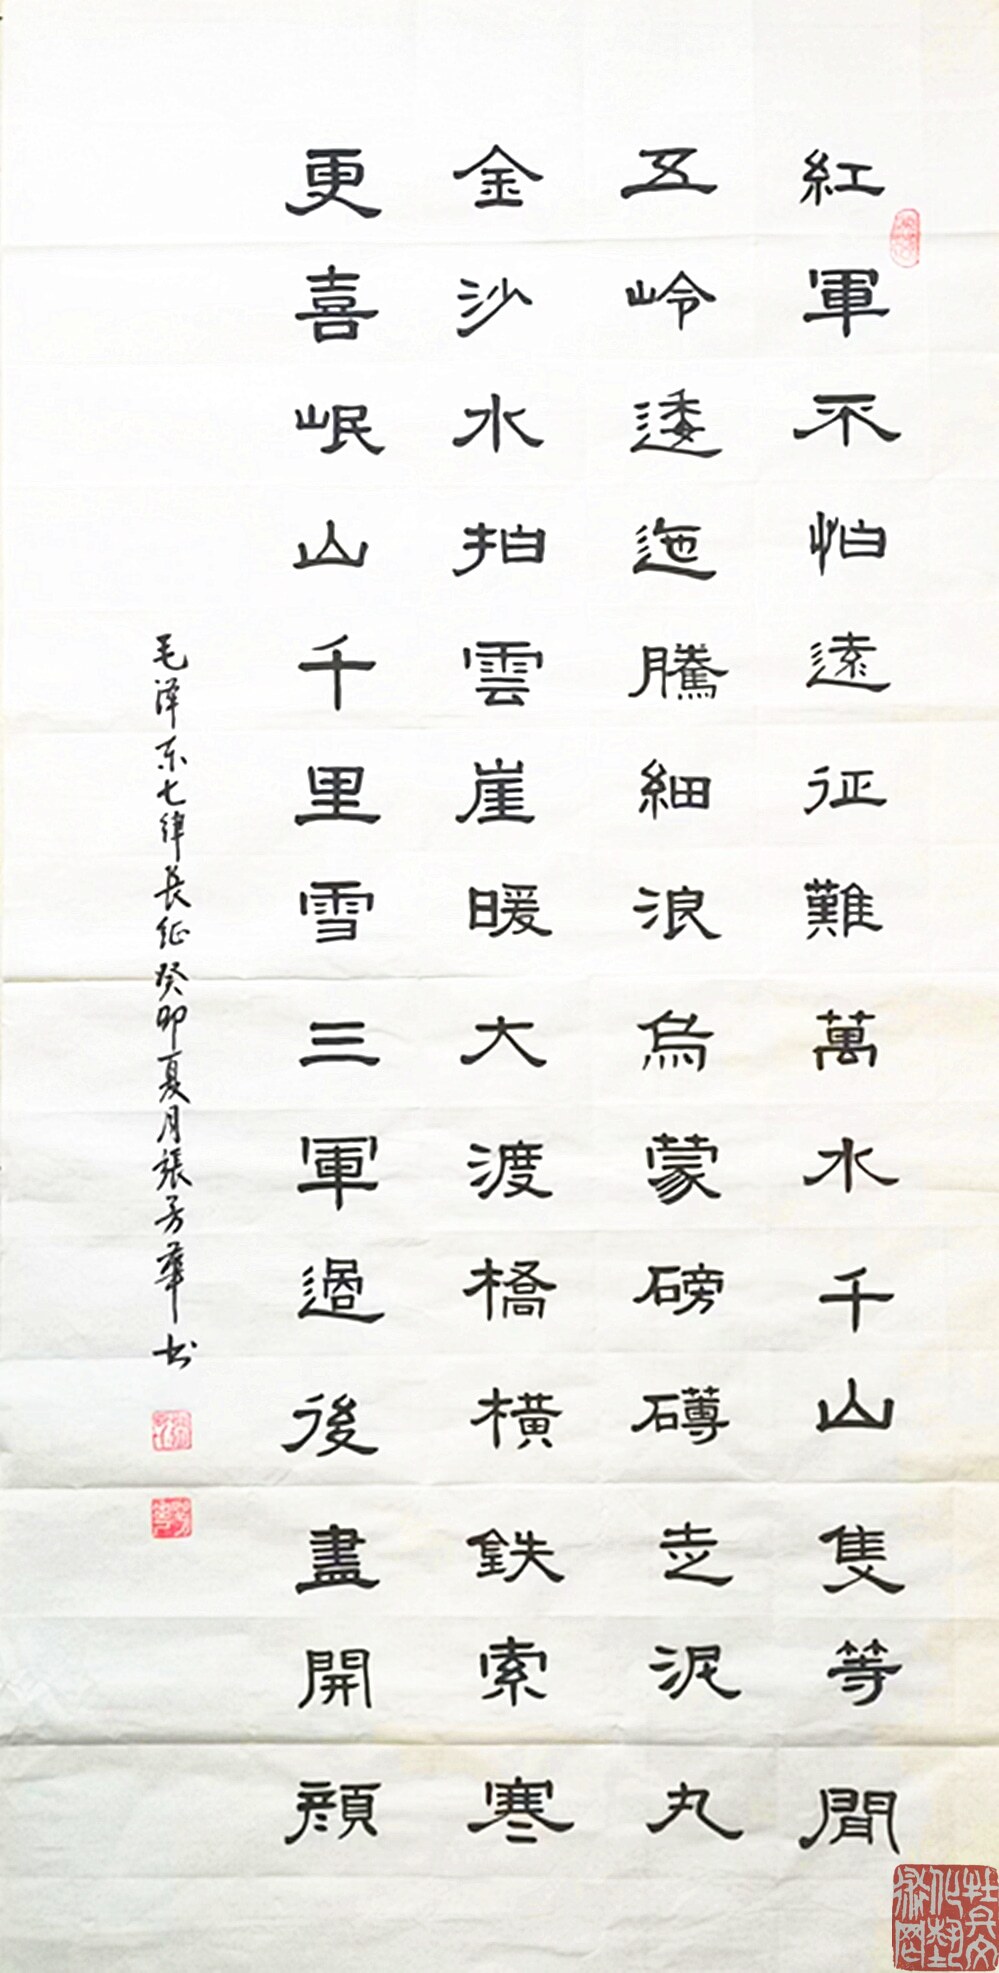 紅軍不怕遠征難萬水千山隻等閒
五岭逶迤騰細浪烏蒙磅礴走泥丸
金沙水拍雲崖暖大渡橋橫鉄索寒
更喜岷山千里雪三軍過後盡開顏
毛泽东七律長征癸卯夏月張芳華书